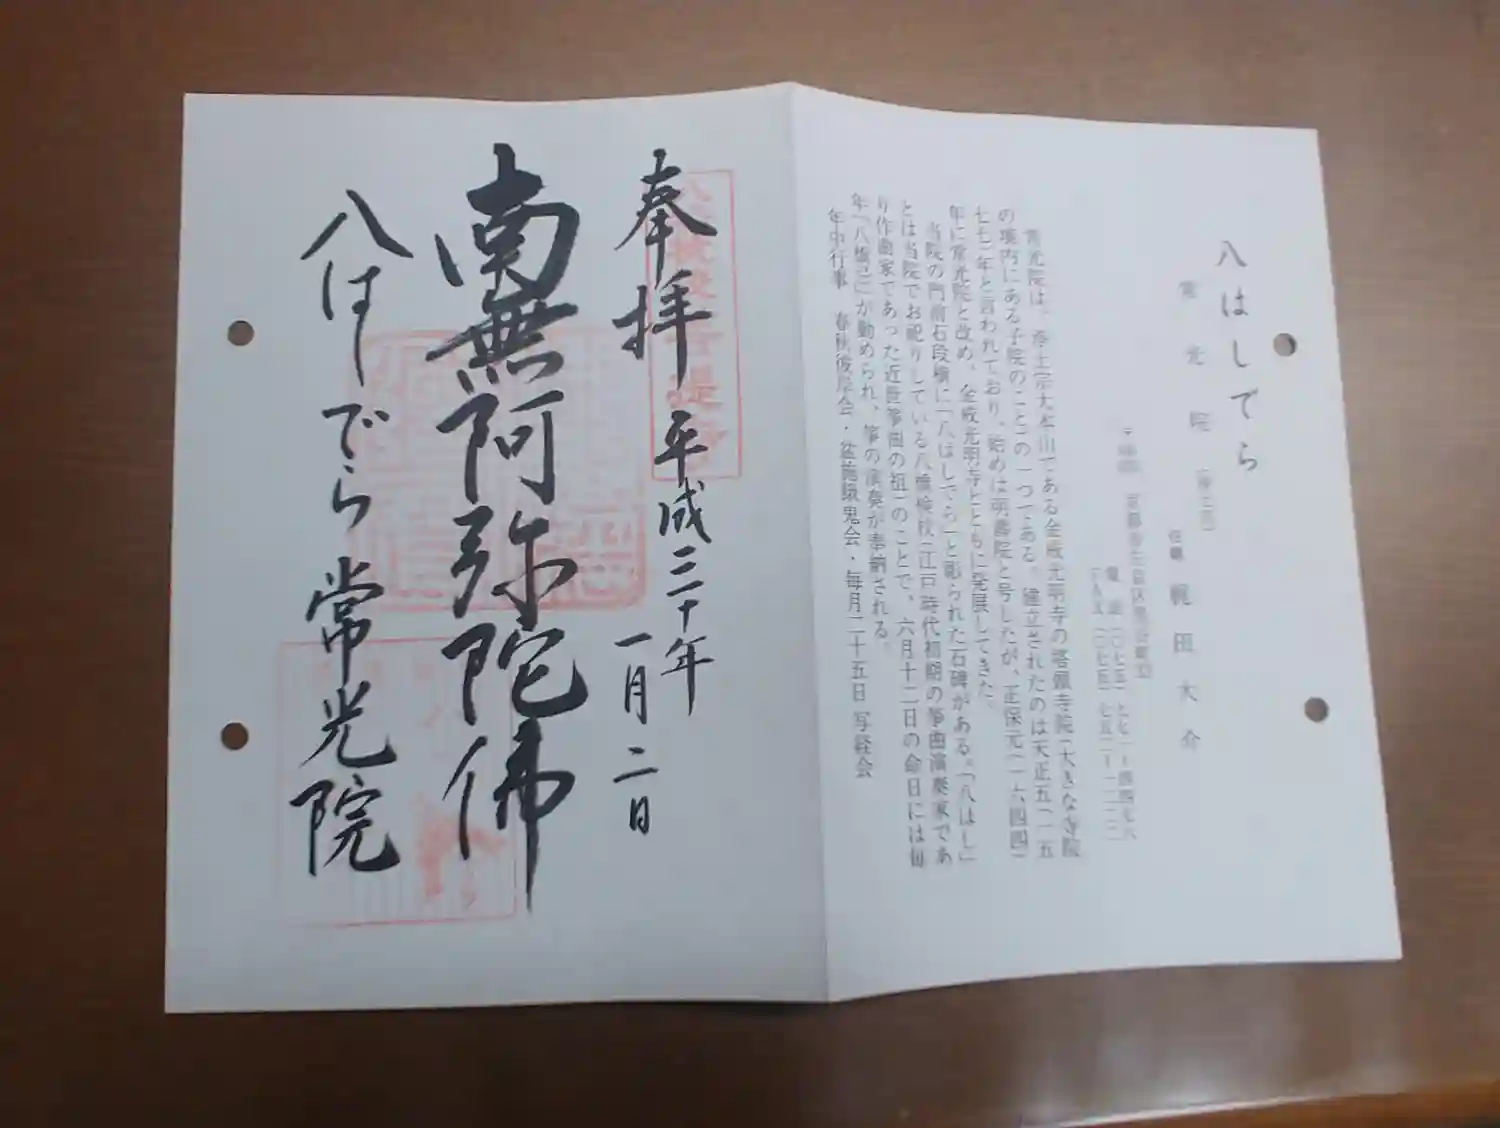 八はしでら
常光院
住職 梶田大介
電話(〇七五)七七一ー四四七六
FAX(〇七五)七五二ー一二二二
常光院は、浄土宗大本山である金戒光明寺の塔頭寺院(大きな寺院
の境内にある子院のこと)の一つである。建立されたのは天正五(一五
七七)年と言われており、始めは明壽院と号したが、正保元(一六四四)
年に常光院と改め、金戒光明寺とともに発展してきた。
当院の門前石段横に「八はしでら」と彫られた石碑がある。「八はし」
とは当院でお祀りしている八橋検校(江戸時代初期の箏曲演奏家であ
り作曲家であった近世箏曲の祖)のことで、六月十二日の命日には毎
年「八橋忌」が勤められ、箏の演奏が奉納される。
年中行事 春秋彼岸会・盆施餓鬼会・毎月二十五日写経会
奉拝 平成三十年
一月二日
南無阿弥陀佛
八はしでら 常光院